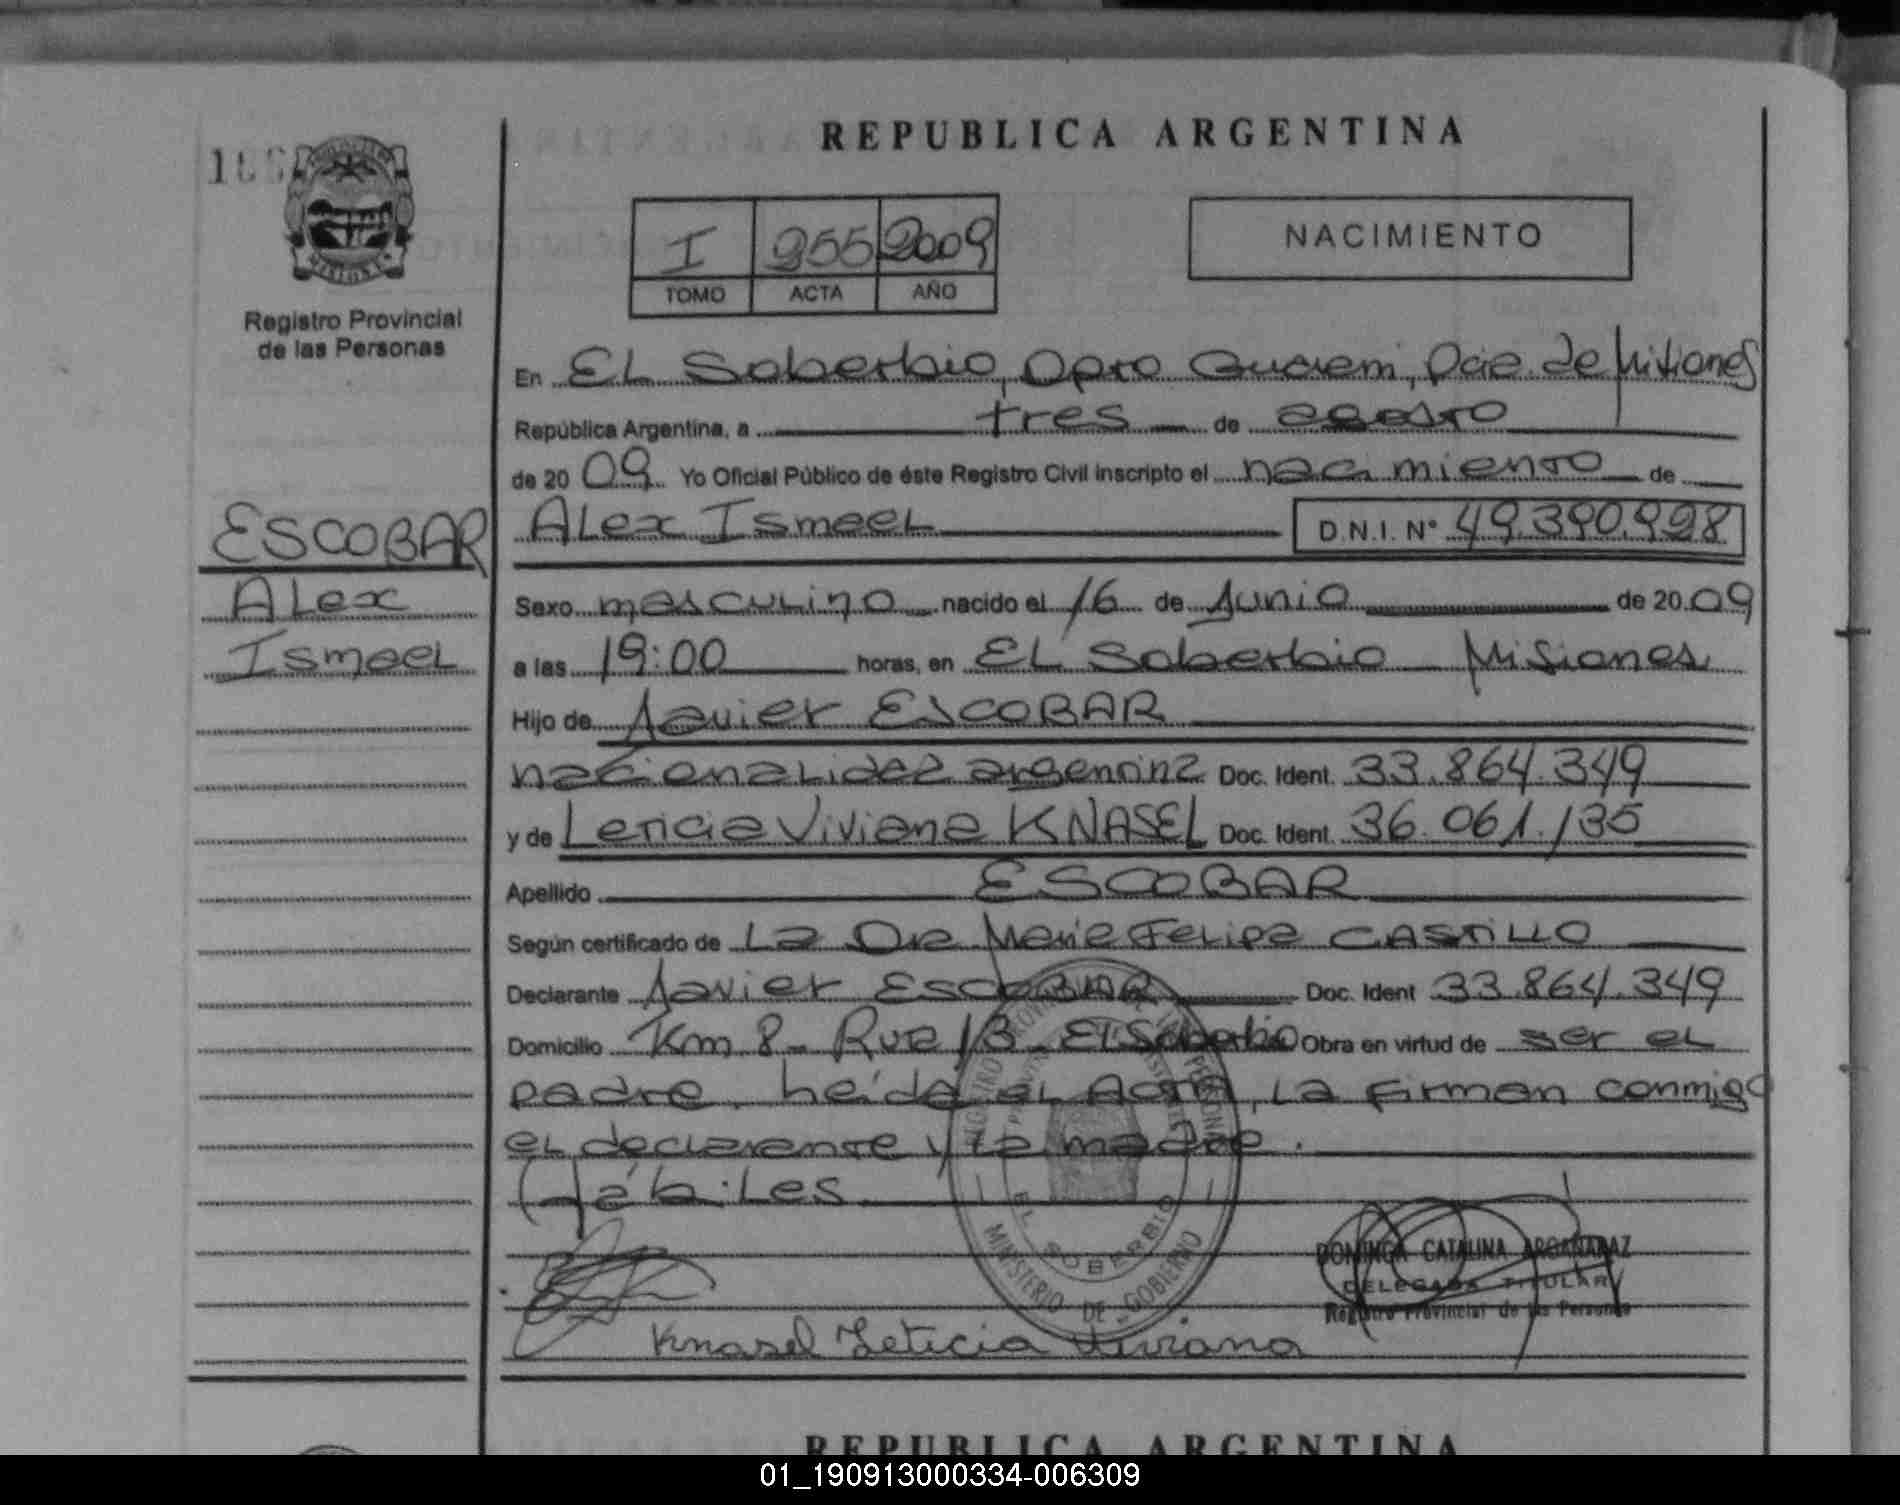 REPUBLICA ARGENTINA
MISIONES
Registro Provincial
de las Personas
I 255 2009
TOMO ACTA AÑO
NACIMIENTO
En EL Soberbio, Dpto Guarani, Pcia. de Misiones
República Argentina, a tres de agosto
de 20 09 Yo Oficial Público de éste Registro Civil inscripto el nacimiento de
ESCOBAR
Alex
Ismael
Alex Ismael D.N.I. Nº 49.390.998
Sexo masculino nacido el 16 de Junio de 20 09
a las 19:00 horas, en EL Soberbio Misiones
Hijo de Javier ESCOBAR
nacionalidad argentina Doc. Ident. 33.864.349
y de Leticia Viviana KNASEL Doc. Ident. 36.061.135
Apellido ESCOBAR
Según certificado de La Dra Maria Felipa CASTILLO
Declarante Javier ESCOBAR Doc. Ident 33.864.349
Domicilio Km 8 - Ruta 13 - El Soberbio Obra en virtud de ser el
padre. Leída el Acta, la firman conmigo
el declarante y la madre.
Hábiles
EL SOBERBIO
MINISTERIO DE GOBIERNO
DOMINGA CATALINA ARGAÑARAZ
DELEGADA TITULAR
Registro Provincial de las Personas
Knasel Leticia Viviana
REPUBLICA ARGENTINA
01_190913000334-006309